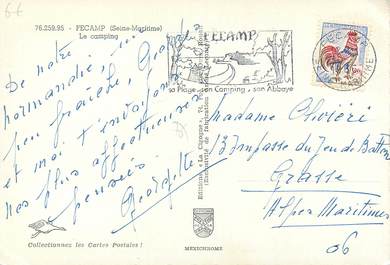 6€
76.259.95 - FECAMP (Seine-Maritime)
Le camping
FECAMP
sa Plage - son Camping - son Abbaye
De notre
normandie, un
peu fraîche, Georges
et moi t'envoyons
nos plus affectueuses
pensées
Georgette
Madame Olivieri
13 Impasse du Jeu de Ballon
Grasse
Alpes Maritimes
06
Collectionnez les Cartes Postales !
MEXICHROME